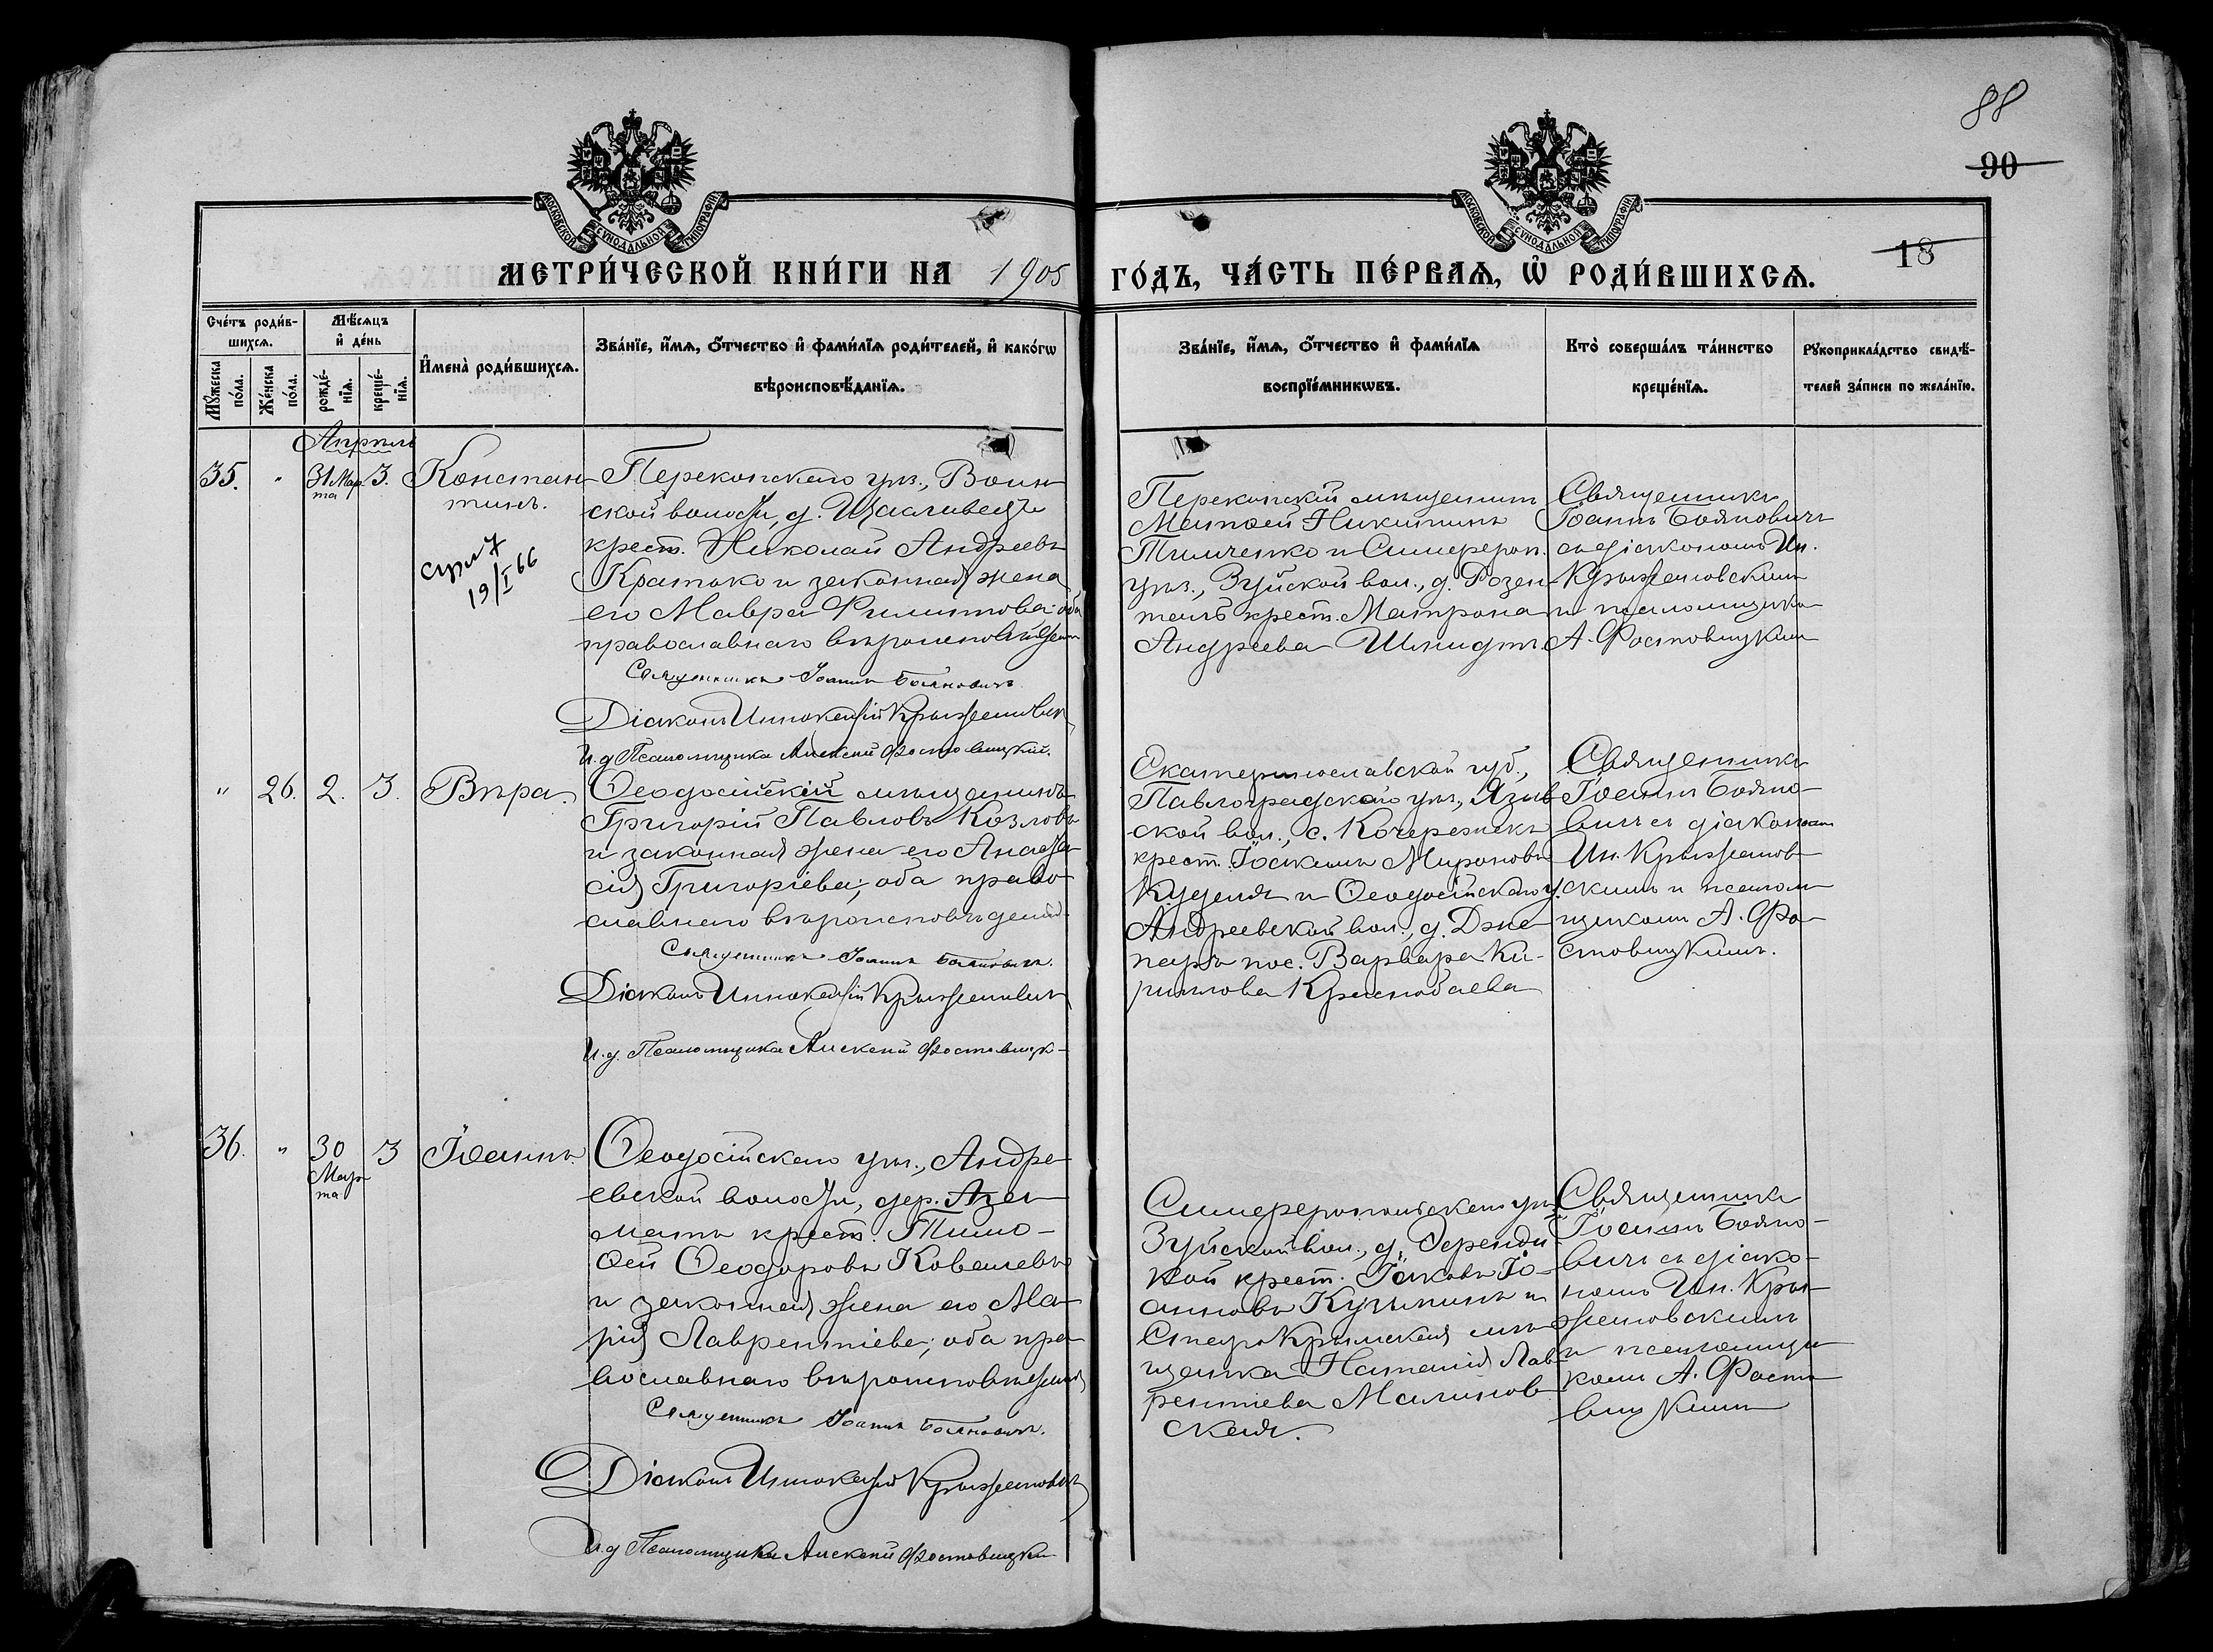 88
90
18
МОСКОВСКОЙ СѴНОДАЛЬНОЙ ТИПОГРАФІИ
МОСКОВСКОЙ СѴНОДАЛЬНОЙ ТИПОГРАФІИ
МЕТРИ́ЧЕСКОЙ КНИ́ГИ НА 1905
ГО́ДЪ, ЧА́СТЬ ПЕ́РВАѦ, Ѡ҆ РОДИ́ВШИХСѦ.
Сче́тъ роди́в-
шихсѧ.
Мѣ́сѧцъ
и҆ де́нь
Мꙋ́жеска
по́ла.
Же́нска
по́ла.
рожде́-
нїѧ.
креще́-
нїѧ.
И҆мена̀ роди́вшихсѧ.
Зва́нїе, и҆́мѧ, ѻ҆́тчество и҆ фами́лїѧ роди́телей, и҆ како́гѡ
вѣроисповѣ́данїѧ.
Зва́нїе, и҆́мѧ, ѻ҆́тчество и҆ фами́лїѧ
воспрїе́мникѡвъ.
Кто̀ соверша́лъ та́инство
креще́нїѧ.
Рꙋкоприкла́дство свидѣ́-
телей за́писи по жела́нїю.
Апрѣль
35. " 31 Мар 3. Констан-
та
тинъ.
19/I 66
Перекопскаго уѣз., Воин-
ской волости, д.
крест. Николай Андреевъ
и законная жена
его Мавра Филиппова; оба
православнаго вѣроисповѣданія
Священникъ Іоаннъ Бояновичъ.
Діаконъ Иннокентій Крыжановскій
И. д. Псаломщика Алексей Фостовицкій.
Перекопскій мѣщанинъ
Матѳей Никитинъ
Тимченко и Симфероп.
уѣз., Зуйской вол., д. Розен-
таль крест. Матрона
Андреева Шмидтъ.
Священникъ
Іоаннъ Бояновичъ
съ діакономъ Ин.
Крыжановскимъ
и псаломщико
А. Фостовицким
" 26. 2. 3. Вѣра.
Ѳеодосійскій мѣщанинъ
Григорій Павловъ Козловъ
и законная жена его Анаста-
сія Григоріева; оба право-
славнаго вѣроисповѣданія.
Священникъ Іоаннъ Бояновичъ.
Діаконъ Иннокентій Крыжановскій
И. д. Псаломщика Алексей Фостовицк-
Екатеринославской губ.,
Павлоградскаго уѣз., Языв-
ской вол., с. Кочережекъ
крест. Іоакимъ Мироновъ
Куделя и Ѳеодосійскаго у.
Андреевской вол., д. Джа-
паръ пос. Варвара Ки-
риллова Краснобаева
Священникъ
Іоаннъ Бояно-
вичъ съ діаконом
Ин. Крыжанов-
скимъ и псалом-
щикомъ А. Фо-
стовицкимъ.
36. " 30 3 Іоаннъ.
Мар-
та
Ѳеодосійскаго уѣз., Андре-
евской волости, дер. Азам-
матъ крест. Тимо-
ѳей Ѳеодоровъ Ковалевъ
и законная жена его Ма-
рія Лаврентіева; оба пра-
вославнаго вѣроисповѣданія
Священникъ Іоаннъ Бояновичъ.
Діаконъ Иннокентій Крыжановскій
И. д Псаломщика Алексей Фостовицкій
Симферопольскаго уѣз.
Зуйской вол., д. Эфенди-
кой крест. Іаковъ Іо-
анновъ Кузьминъ и
Старокрымская мѣ-
щанка Наталія Лав-
рентіева Малинов-
ская.
Священникъ
Іоаннъ Бояно-
вичъ съ діако-
номъ Ин. Кры-
жановскимъ
и псаломщи-
комъ А. Фосто-
вицкимъ